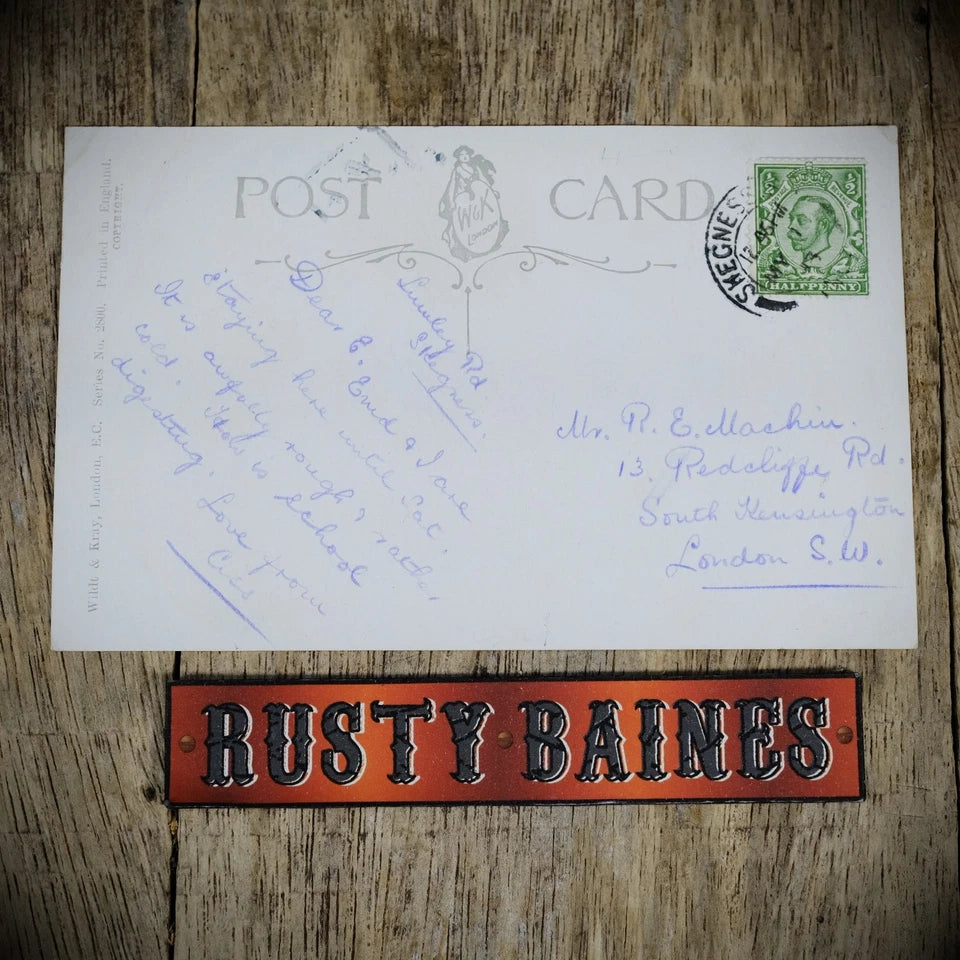 POST CARD
W&K
LONDON
HALFPENNY
SKEGNESS
Wildt & Kray, London, E.C. Series No. 2800. Printed in England.
COPYRIGHT.
Lumley Rd
Skegness.
Dear E. Enid & I are
staying here until Sat.
It is awfully rough & rather
cold. How is school
digesting. Love from
Cis
Mr. R. E. Machin.
13, Redcliffe Rd.
South Kensington
London S.W.
RUSTY BAINES